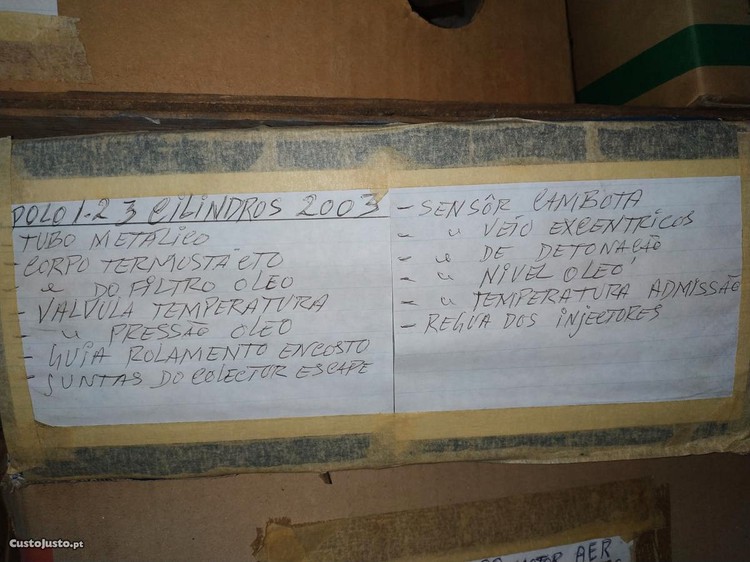 POLO 1-2 3 CILINDROS 2003
TUBO METALICO
- CORPO TERMOSTÁCTO
- " DO FILTRO OLEO
- VALVULA TEMPERATURA
- " PRESSÃO OLEO
- GUIA ROLAMENTO ENCOSTO
- JUNTAS DO COLECTOR ESCAPE
- SENSÔR CAMBOTA
- " VEIO EXCENTRICOS
- " DE DETONAÇÃO
- " NIVEL OLEO
- " TEMPERATURA ADMISSÃO
- REGUA DOS INJECTORES
MOTOR AER
CustoJusto.pt